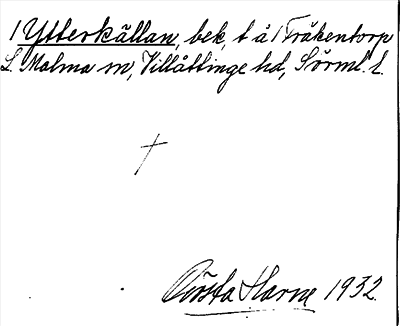 1 Ytterkällan, bek, t å 1 Fråkentorp
L. Malma sn, Villåttinge hd, Sörml. l.
Gösta Harne 1932.